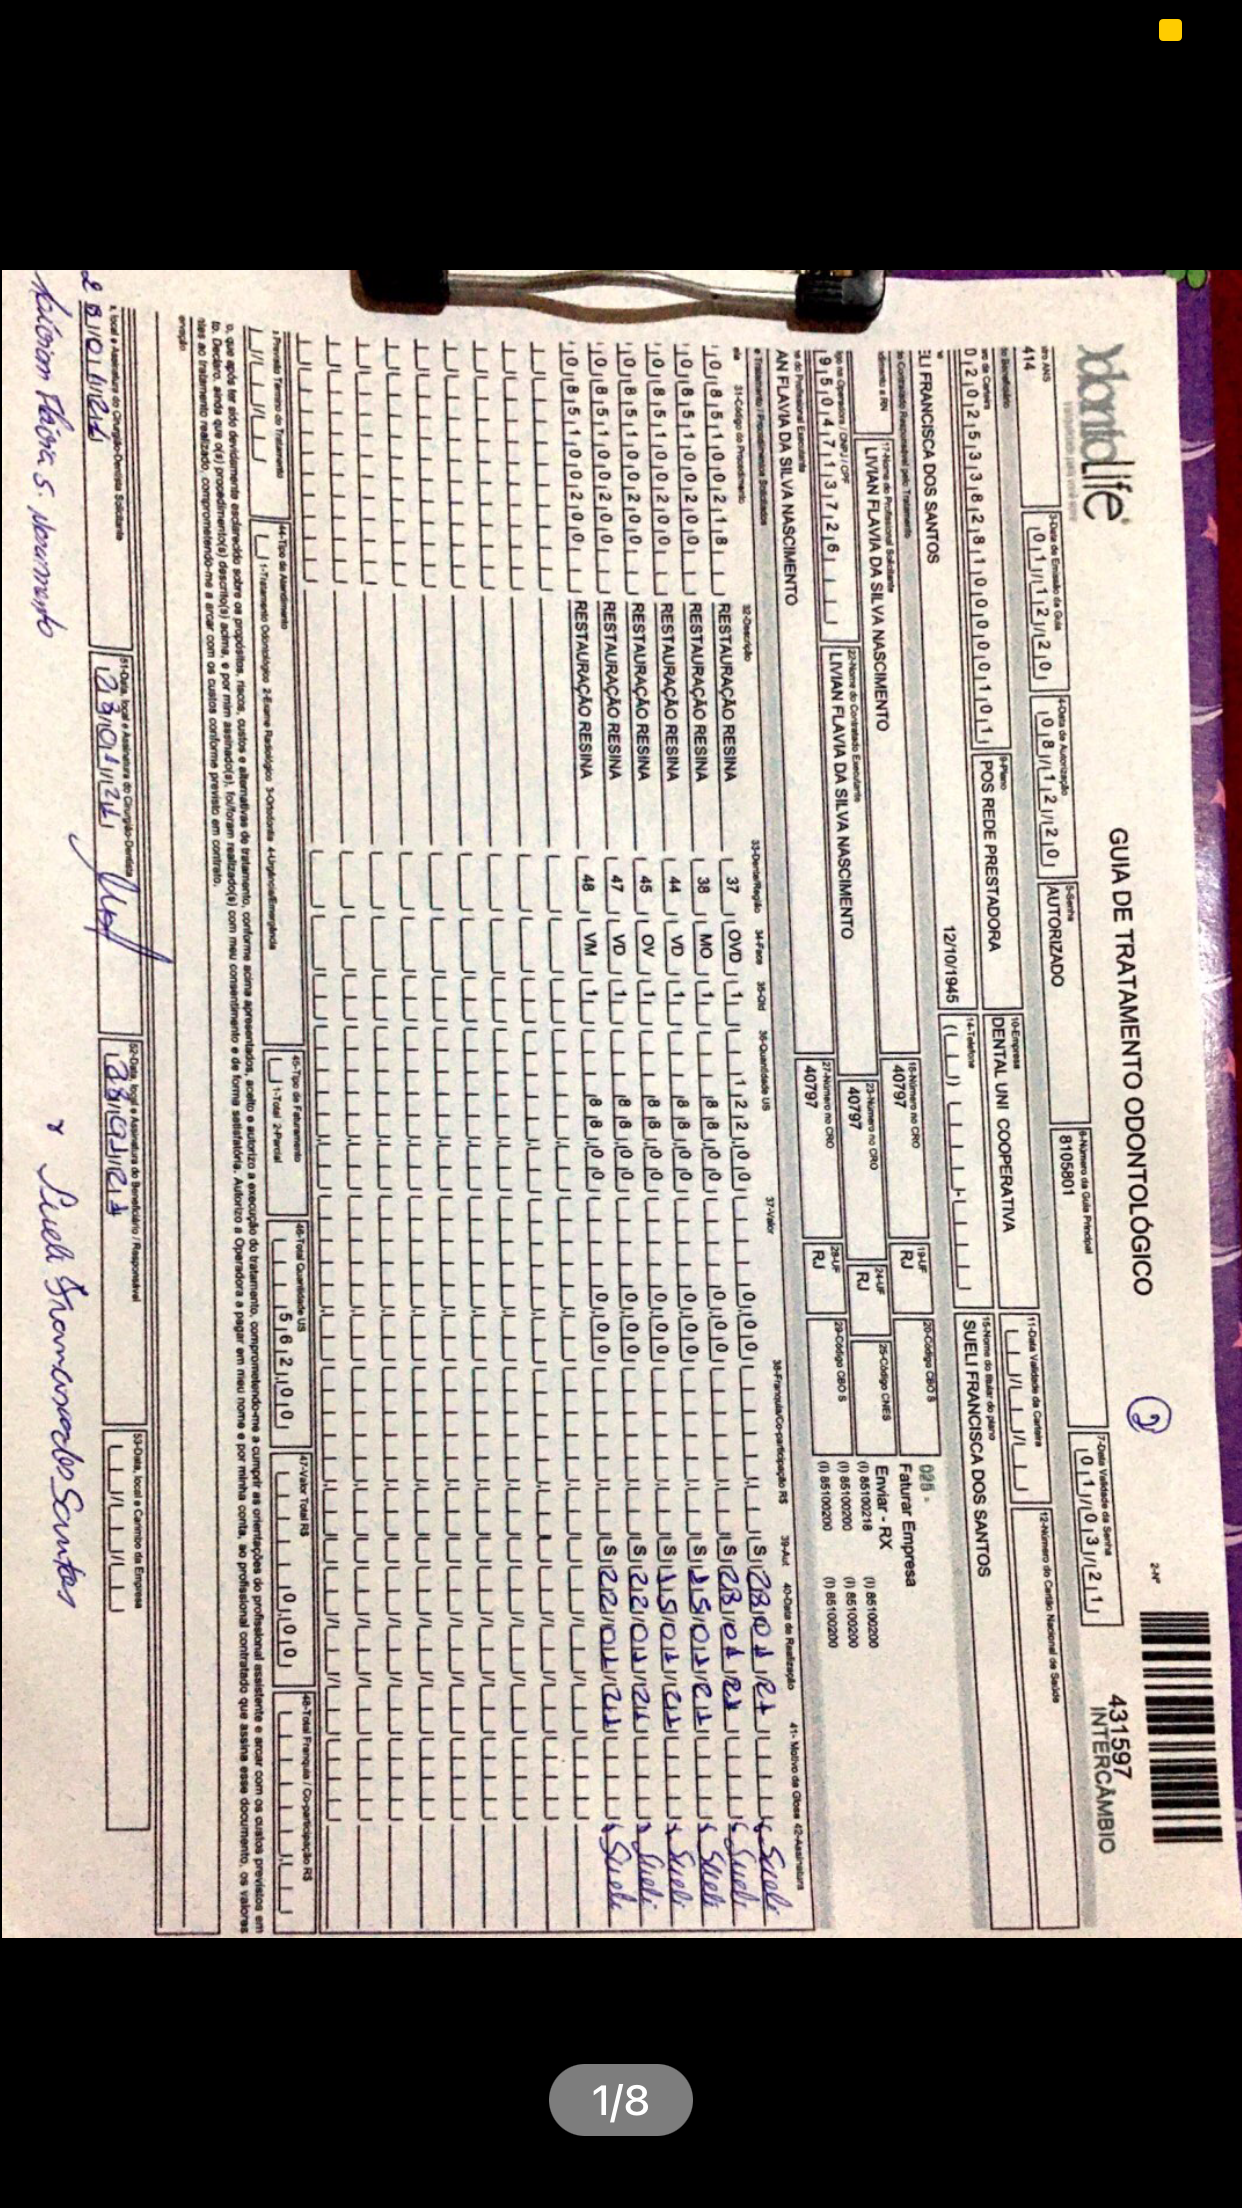 OdontoLife
GUIA DE TRATAMENTO ODONTOLÓGICO
2
2-Nº
431597
INTERCÂMBIO
414
3-Data de Emissão da Guia
01/12/20
4-Data de Autorização
08/12/20
5-Senha
AUTORIZADO
6-Número da Guia Principal
8105801
7-Data Validade da Senha
01/03/21
020253382810000101
9-Plano
POS REDE PRESTADORA
10-Empresa
DENTAL UNI COOPERATIVA
11-Data Validade da Carteira
12-Número do Cartão Nacional de Saúde
ELI FRANCISCA DOS SANTOS
12/10/1945
14-Telefone
15-Nome do titular do plano
SUELI FRANCISCA DOS SANTOS
17-Nome do Profissional Solicitante
LIVIAN FLAVIA DA SILVA NASCIMENTO
18-Número no CRO
40797
19-UF
RJ
20-Código CBO S
025 -
Faturar Empresa
Enviar - RX
(I) 85100218 (I) 85100200
(I) 85100200 (I) 85100200
(I) 85100200 (I) 85100200
9504713726
22-Nome do Contratado Executante
LIVIAN FLAVIA DA SILVA NASCIMENTO
23-Número no CRO
40797
24-UF
RJ
25-Código CNES
AN FLAVIA DA SILVA NASCIMENTO
27-Número no CRO
40797
28-UF
RJ
29-Código CBO S
31-Código do Procedimento 32-Descrição 33-Dente/Região 34-Face 35-Qtd 36-Quantidade US 37-Valor 38-Franquia/Co-participação R$ 39-Aut 40-Data de Realização 41- Motivo da Glosa 42-Assinatura
085100218 RESTAURAÇÃO RESINA 37 OVD 1 122,00 0,00 S 28 01 21 Sueli
085100200 RESTAURAÇÃO RESINA 38 MO 1 88,00 0,00 S 28 01 21 Sueli
085100200 RESTAURAÇÃO RESINA 44 VD 1 88,00 0,00 S 15 01 21 Sueli
085100200 RESTAURAÇÃO RESINA 45 OV 1 88,00 0,00 S 15 01 21 Sueli
085100200 RESTAURAÇÃO RESINA 47 VD 1 88,00 0,00 S 22 01 21 Sueli
085100200 RESTAURAÇÃO RESINA 48 VM 1 88,00 0,00 S 22 01 21 Sueli
44-Tipo de Atendimento
1-Tratamento Odontológico 2-Exame Radiológico 3-Ortodontia 4-Urgência/Emergência
45-Tipo de Faturamento
1-Total 2-Parcial
46-Total Quantidade US
562,00
47-Valor Total R$
0,00
48-Total Franquia / Co-participação R$
o, que após ter sido devidamente esclarecido sobre os propósitos, riscos, custos e alternativas de tratamento, conforme acima apresentados, aceito e autorizo a execução do tratamento, comprometendo-me a cumprir as orientações do profissional assistente e arcar com os custos previstos em
to. Declaro, ainda que o(s) procedimento(s) descrito(s) acima, e por mim assinado(s), foi/foram realizado(s) com meu consentimento e de forma satisfatória. Autorizo a Operadora a pagar em meu nome e por minha conta, ao profissional contratado que assina esse documento, os valores
ntes ao tratamento realizado, comprometendo-me a arcar com os custos conforme previsto em contrato.
local e Assinatura do Cirurgião-Dentista Solicitante
28/01/21
51-Data, local e Assinatura do Cirurgião-Dentista
28/01/21
52-Data, local e Assinatura do Beneficiário / Responsável
28/01/21
53-Data, local e Carimbo da Empresa
Flavia S. Nascimento
Sueli Francisca dos Santos
1/8